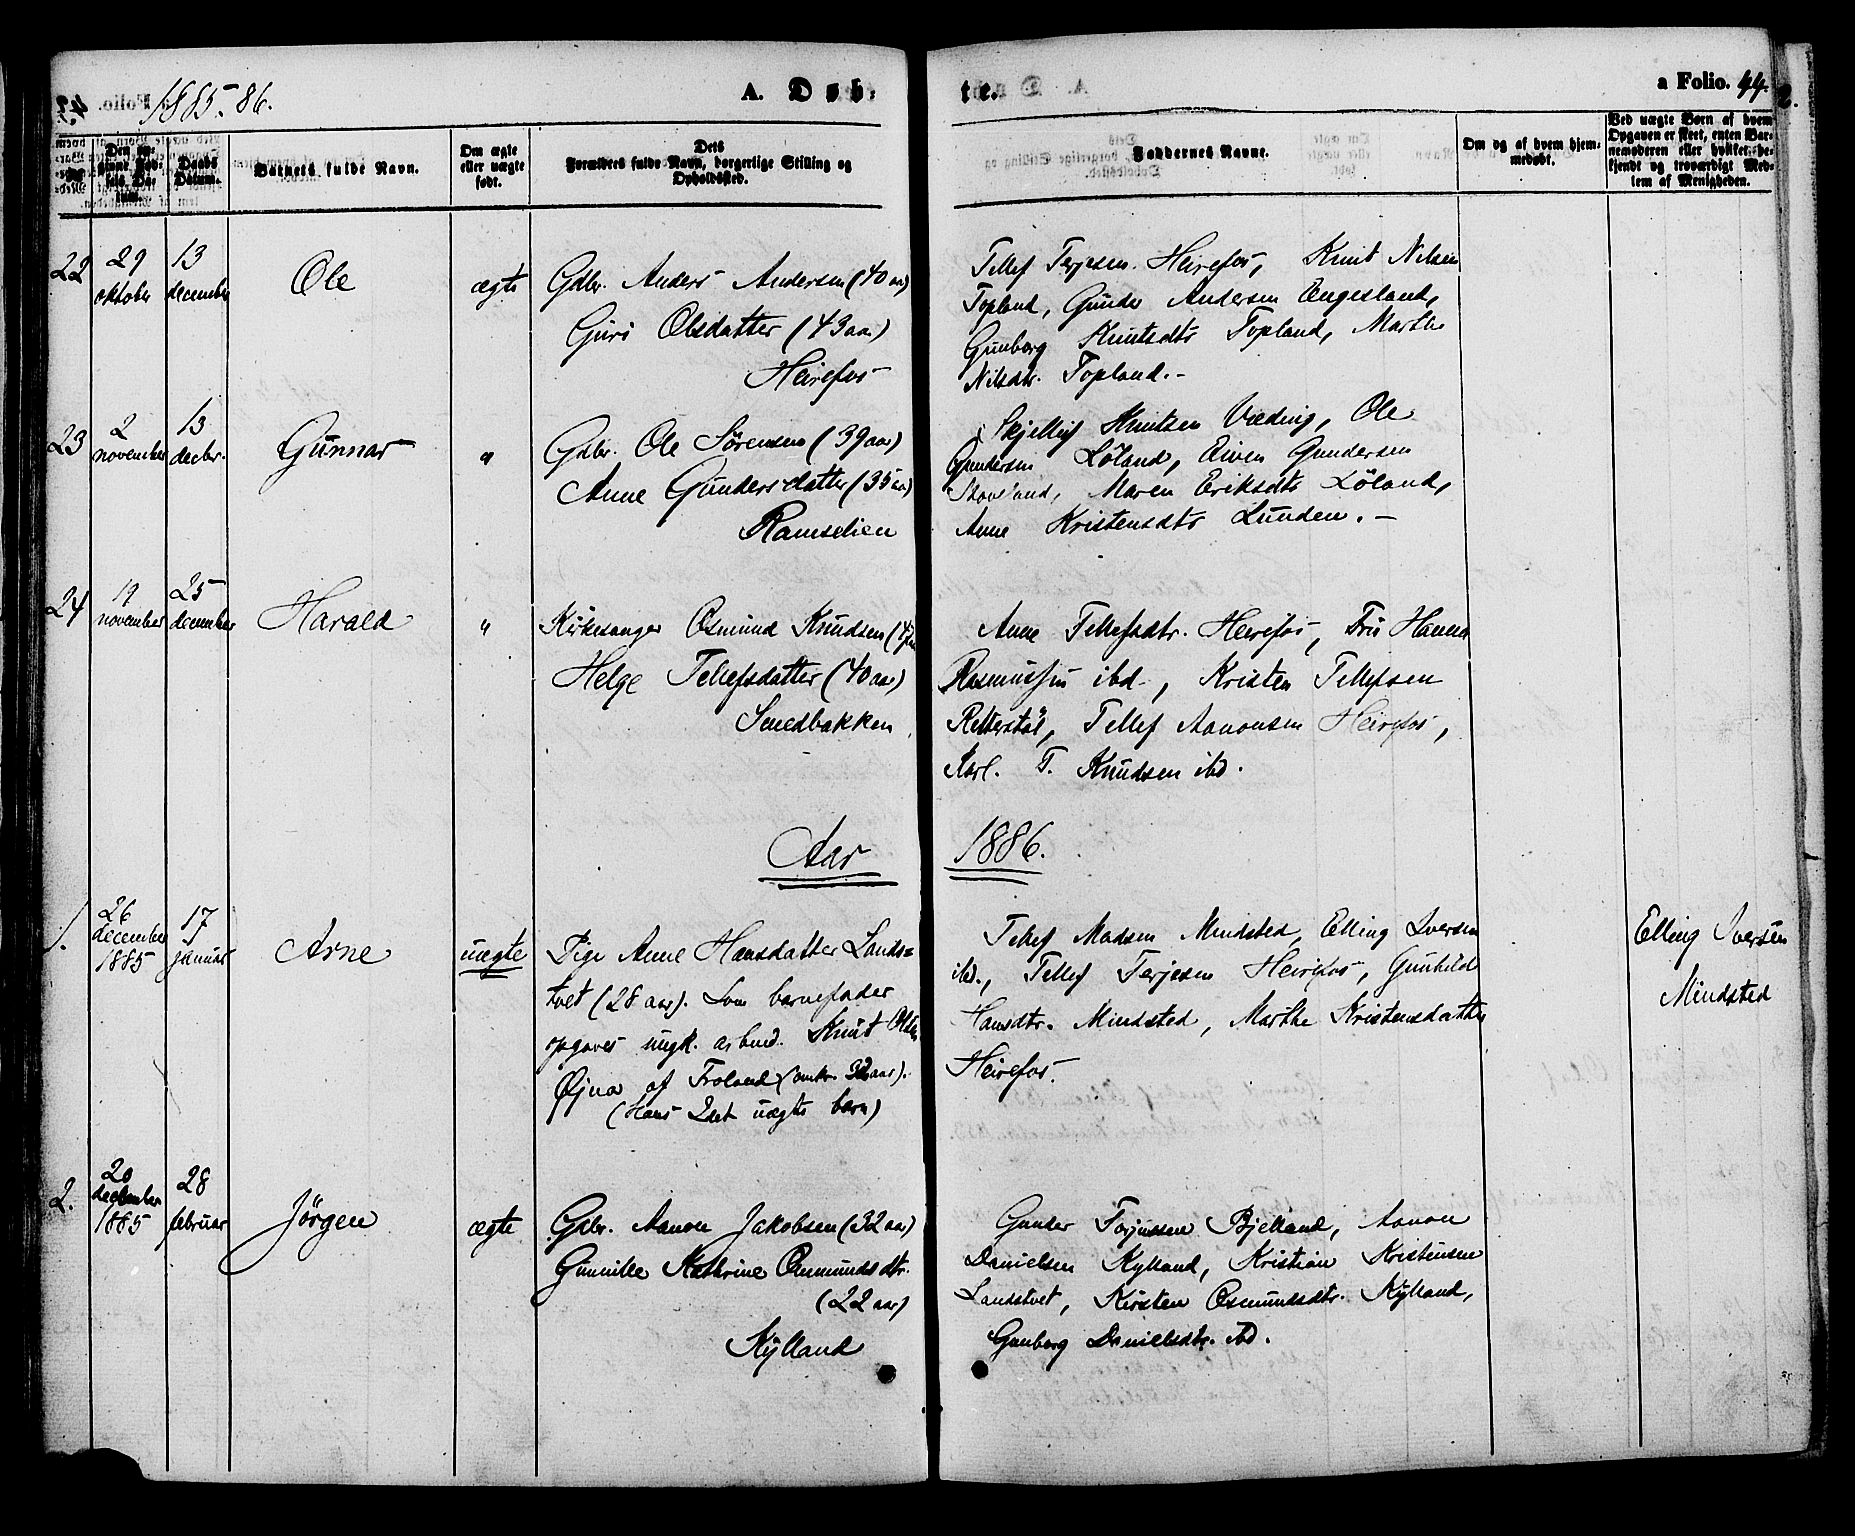 1885-86.
A. Døb-
te.
a Folio. 44.
Barnets fulde Navn.
Daabs Datum.
Om ægte eller uægte født.
Dets Forældres fulde Navn, borgerlige Stilling og Opholdssted.
Faddernes Navne.
Om og af hvem hjemmedøbt.
Ved uægte Børn af hvem Opgaven er skeet, enten Barnemoderen eller hvilket bekjendt og troværdigt Medlem af Menigheden.
22 29 oktober 13 december Ole ægte
Gdbr. Anders Andersen (40 aar)
Guro Olsdatter (43 aar)
Heirefos
Tellef Terjesen Heirefos, Knut Nilsen
Topland, Gunder Andersen Engesland,
Gunborg Knutsdtr Topland, Marthe
Nilsdtr. Topland.-
23 2 november 13 decbr. Gunnar "
Gdbr. Ole Sörensen (39 aar)
Anne Gundersdatter (35 aar)
Ramselien
Skjelluf Knutsen Væding, Ole
Gundersen Löland, Eiven Gundersen
Maren Eriksdtr Löland,
Anne Kristensdtr Lunden. -
24 19 november 25 december Harald "
Kirkesanger Osmund Knudsen
Helge Tellefsdatter (40 aar)
Smedbakken
Anne Tellefsdtr. Heirefos, Fru Hanna
Rasmussen ibd., Kristen Tellefsen
Retterstöl, Tellef Aanonsen Heirefos,
Karl. T. Knudsen ibd.
Aar 1886.
1. 26 december 1885 17 januar Arne uægte
Pige Anne Hansdatter Lands=
tvet (28 aar). Som barnefader
opgaves ungk. arbmd. Knut Olsen
Øjna af Froland (omkr. 32 aar).
(Hans 2det uægte barn)
Tellef Madsen Mindsted, Elling Iversen
ibd., Tellef Terjesen Heirefos, Gunhild
Hansdtr. Mindsted, Marthe Kristensdatter
Heirefos.
Elling Iversen
Mindsted
2. 20 december 1885 28 februar Jörgen ægte
Gdbr. Aanon Jakobsen (32 aar)
Gunnille Kathrine Osmundsdtr.
(22 aar)
Kylland
Gunder Torjussen Bjelland, Aanon
Danielsen Kylland, Kristian Kristensen
Landstvet, Kirsten Osmundsdtr. Kylland,
Gunborg Danielsdtr. ibd.